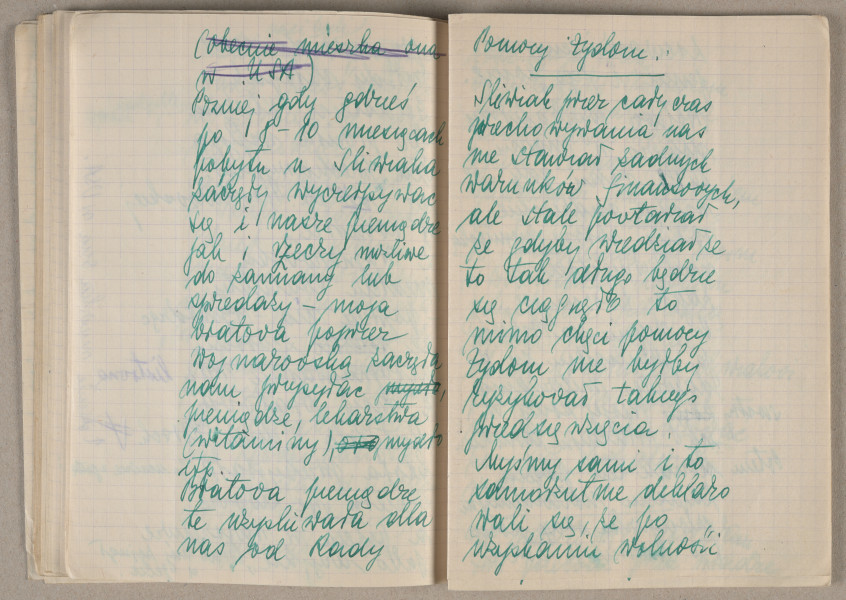 (obecnie mieszka ona
w USA)
Pozniej gdy gdzieś
po 8-10 miesiącach
pobytu u Śliwiaka
zaczęły wyczerpywac
się i nasze pieniądze
jak i rzeczy możliwe
do zamiany lub
sprzedaży - moja
bratowa poprzez
Wojnarowską zaczęła
nam przysyłac mydło,
pieniądze, lekarstwa
(witaminy), mydło
itp.
Bratowa pieniądze
te uzyskiwała dla
nas od Rady
Pomocy Żydom.
Śliwiak przez cały czas
przechowywania nas
nie stawiał żadnych
warunków finansowych,
ale stale powtarzał
że gdyby wiedział że
to tak długo będzie
się ciągnęło to
mimo chęci pomocy
Żydom nie byłby
ryzykował takiego
przedsięwzięcia.
Myśmy sami i to
samorzutnie deklaro
wali się, że po
uzyskaniu wolności